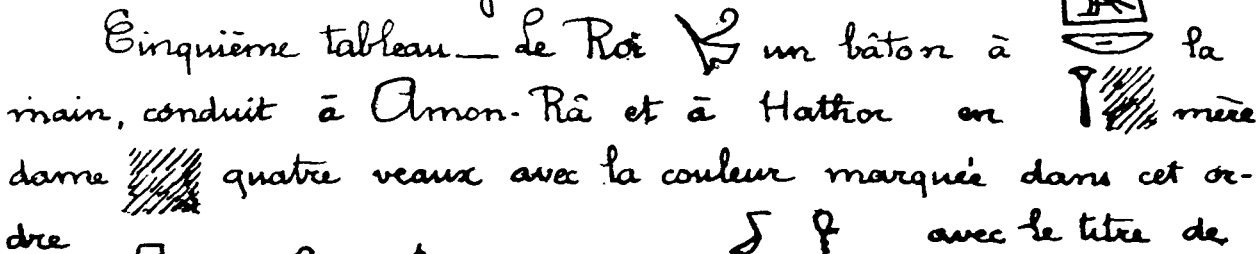 Cinquième tableau — Le Roi un bâton à la
main, conduit à Amon-Râ et à Hathor en mère
dame quatre veaux avec la couleur marquée dans cet or-
dre avec le titre de